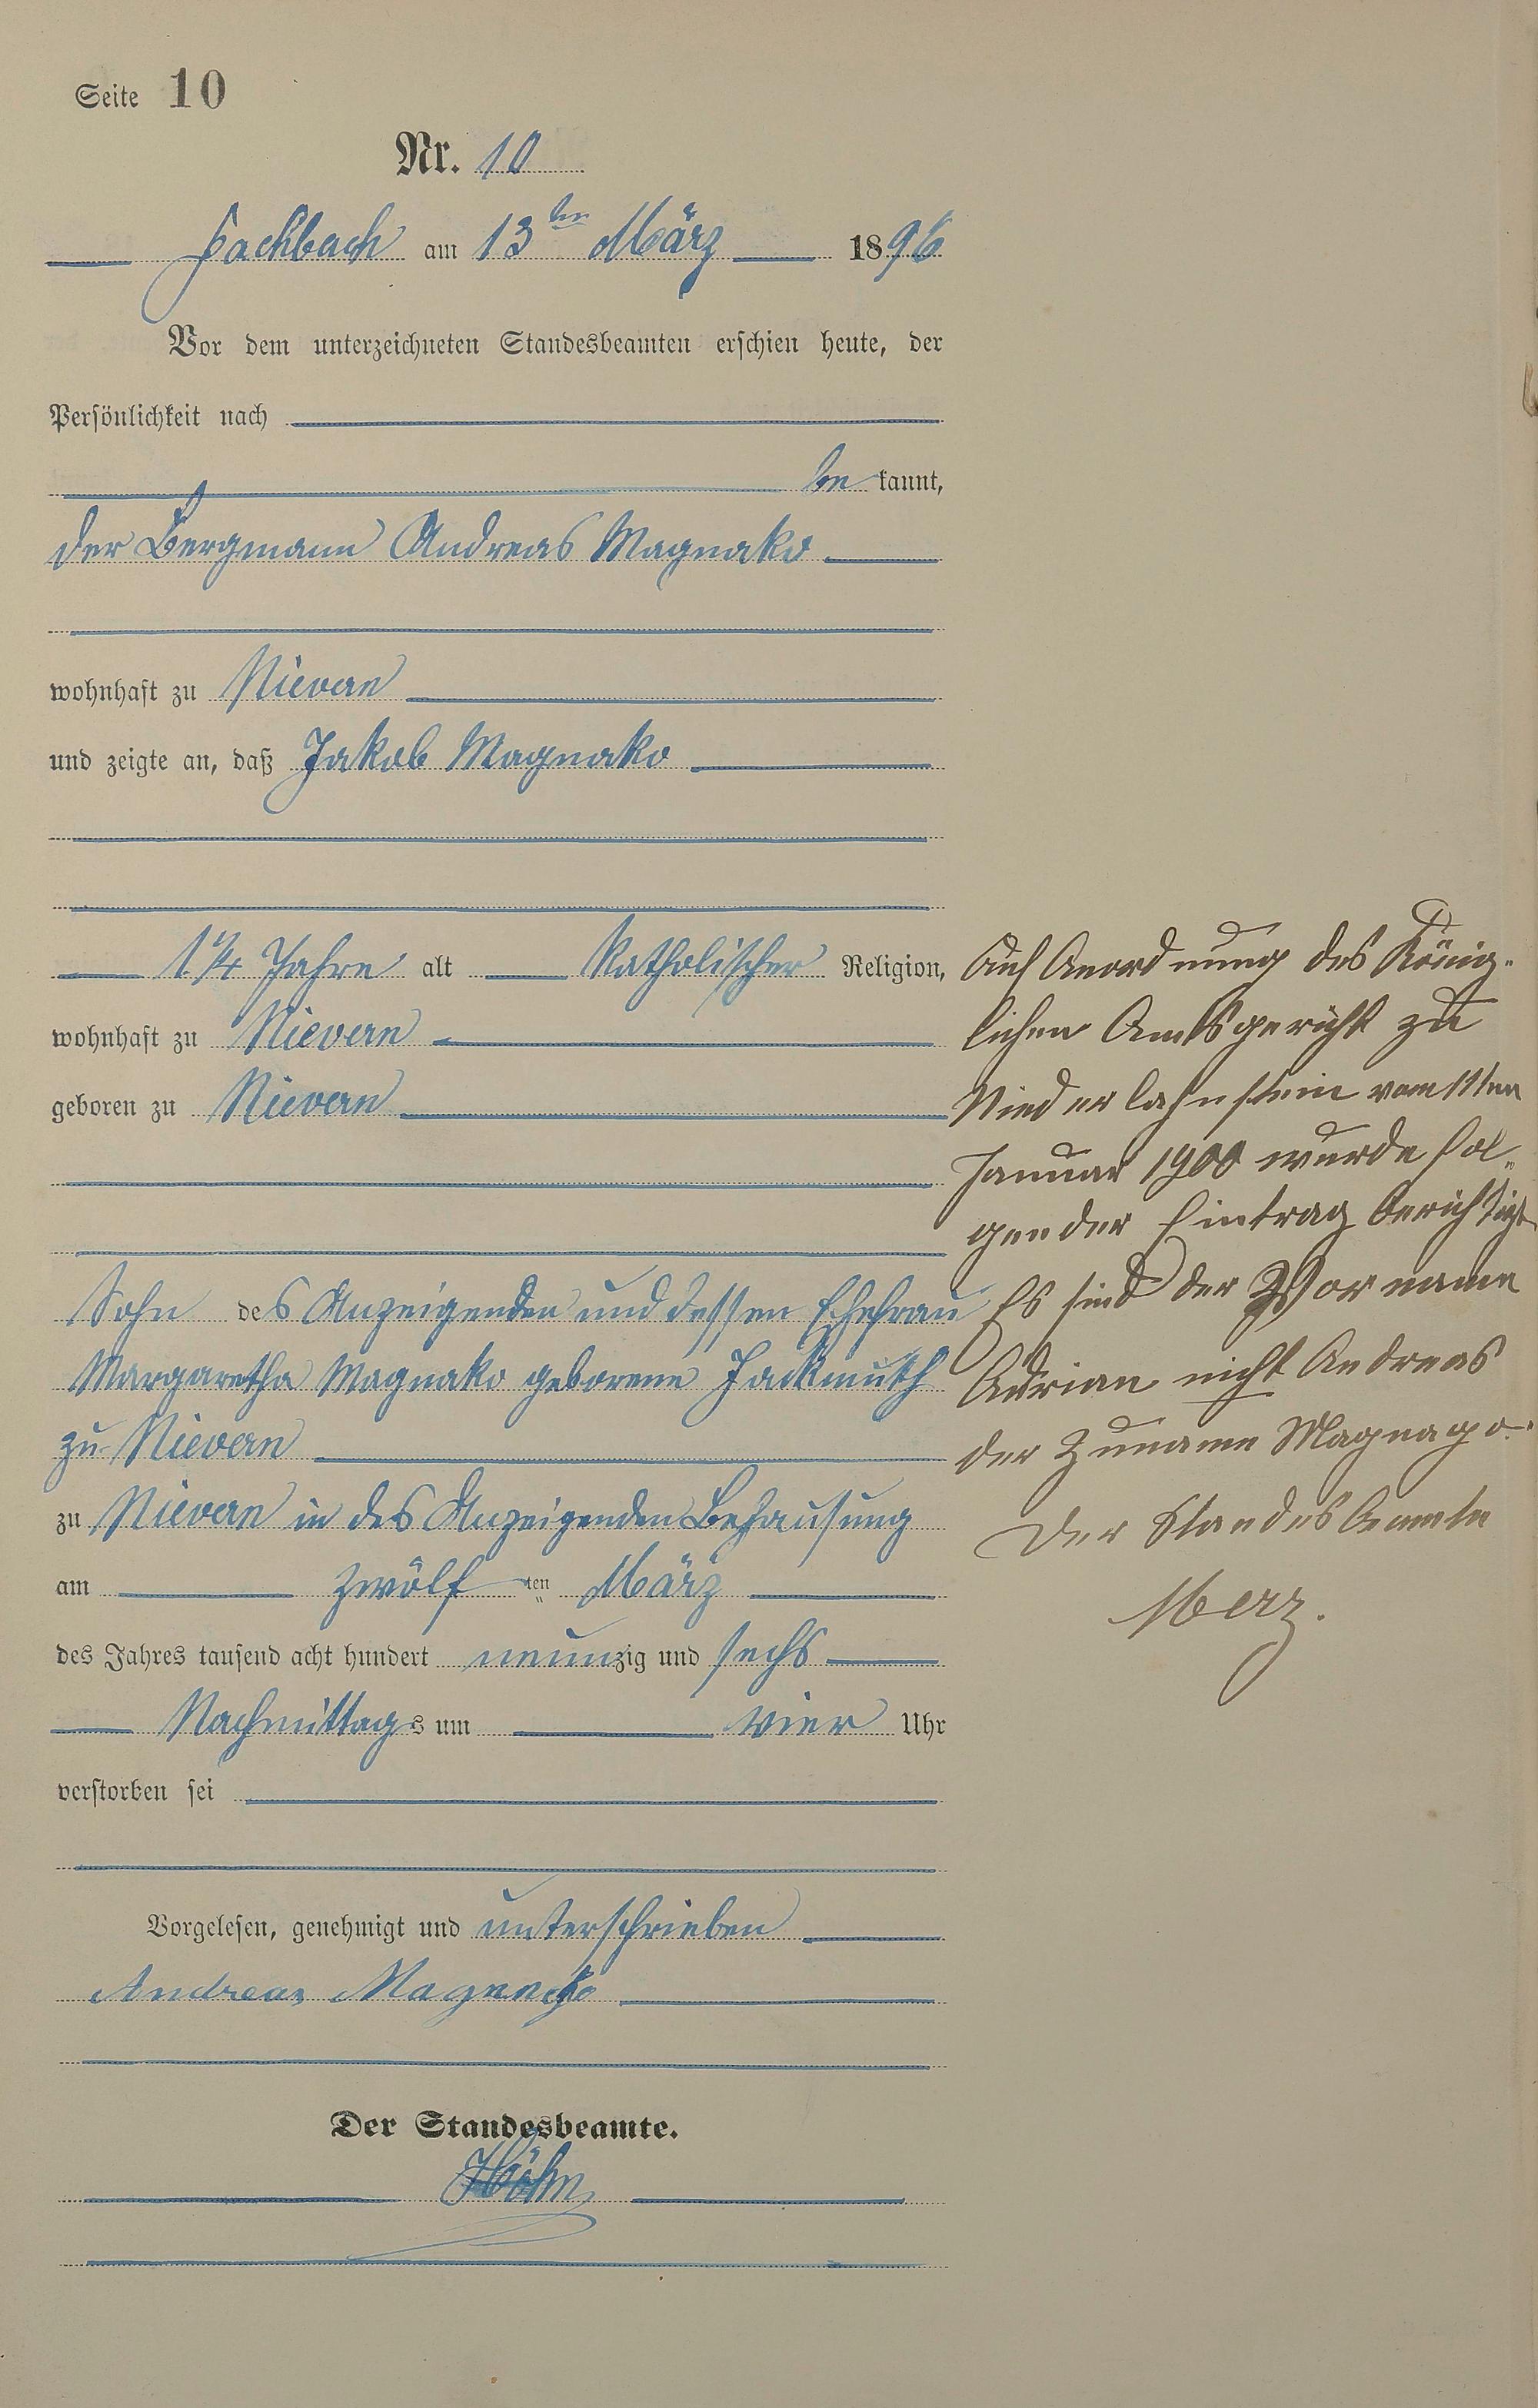 Seite 10
Nr. 10
Fachbach am 13ten März 1896
Vor dem unterzeichneten Standesbeamten erschien heute, der
Persönlichkeit nach
be kannt,
der Bergmann Andreas Magnako
wohnhaft zu Nievern
und zeigte an, daß Jakob Magnako
1 1/4 Jahre alt katholischer Religion,
wohnhaft zu Nievern
geboren zu Nievern
Sohn des Anzeigenden und dessen Ehefrau
Margaretha Magnako geborene Jackmuth
zu Nievern
zu Nievern in des Anzeigenden Behausung
am zwölf ten März
des Jahres tausend acht hundert neunzig und sechs
Nachmittags um vier Uhr
verstorben sei
Vorgelesen, genehmigt und unterschrieben
Andreas Magnako
Der Standesbeamte.
Höhn
Auf Anordnung des König-
lichen Amtsgericht zu
Niederlahnstein vom 11ten
Januar 1900 wurde fol-
gender Eintrag berichtigt
Es sind der Vorname
Adrian nicht Andreas
der Zuname Magnago.
Der Standesbeamte
Merz.